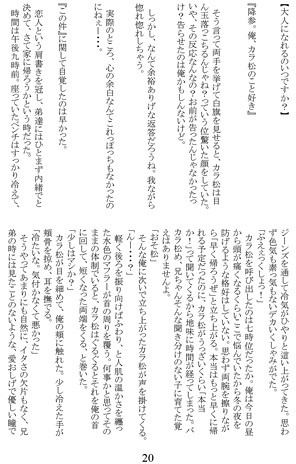 【大人になれるのいつですか?】
『降参。俺、カラ松のこと好き』
そう言って両手を挙げて白旗を見せると、カラ松は目
ん玉落っこちるんじゃねってくらい位驚いた顔をしていた。
いや、その反応なんなの？お前が告ったんじゃなかった
け？告らせたのは俺かもしんないけど。
しっかし、なんて余裕ありげな返答だろうね。我ながら
惚れ惚れしちゃう。
実際のところ、心の余白なんてこれっぽっちもなかったの
にね・・・・。
『この件』に関して自覚したのは早かった。
恋人という肩書きを冠し、弟達にはひとまず内緒でと
決めて、さて家に帰ろうかという時だった。
時間は午後九時前。座っていたベンチはすっかり冷えて、
ジーンズを通して冷気がひやりと這い上がってきた。思わ
ず色気も素っ気もないデカいくしゃみがでた。
「ぶえぇっくしょう！」
カラ松を呼び出したのは七時位だったか。俺は今日の昼
から頭が痛くなるくらいここで悩んでいたから冬の夜を
防げるような格好はしていない。思わず両腕を擦りなが
ら「早く帰ろうぜ」と立ち上がる。本当はもっと早くに帰
れる予定だったのに、カラ松がうっさいくらい「本当
か！」って聞いてくるから地味に時間が経ってしまった。バ
カラ松め、兄ちゃんそんな聞き分けのない子に育てた覚
えはありませんよ。
そんな俺に次いで立ち上がったカラ松が声を掛けてくる。
「おそ松」
「ん・・・・？」
軽く後ろを振り向けばふわり、と人肌の温かさを纏っ
た水色のマフラーが首の周りを覆う。何事かと思ってその
ままの体制でいると、カラ松はぐるぐるとそれを俺の首
に回して、短くなった両端をくるっと巻いた。
「少しはマシか？」
カラ松が目を細めて、俺の頬に触れた。少し冷えた手が
頬骨を掠め、耳を撫でる。
「冷たいな。気付かなくて悪かった」
そうやってあまりにも自然に、イタさの欠片もなく、兄
弟の時には見たことのないような、愛おしげで優しい瞳で
20